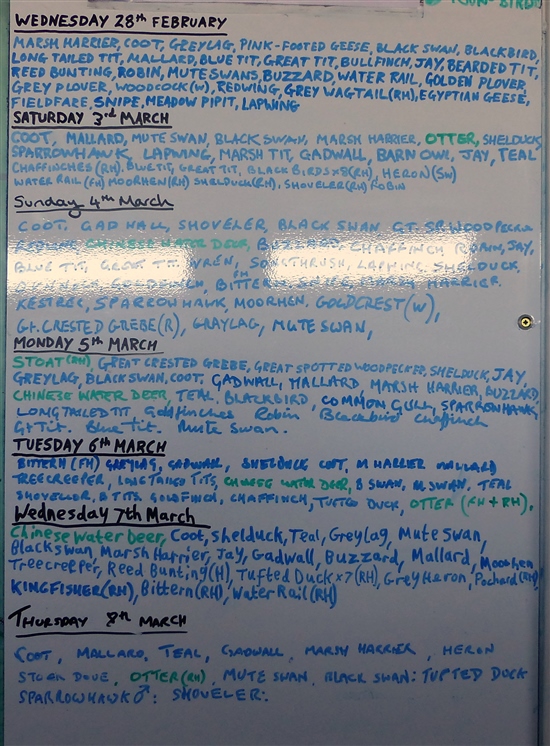 WEDNESDAY 28th FEBRUARY
MARSH HARRIER, COOT, GREYLAG, PINK-FOOTED GEESE, BLACK SWAN, BLACKBIRD,
LONG TAILED TIT, MALLARD, BLUE TIT, GREAT TIT, BULLFINCH, JAY, BEARDED TIT,
REED BUNTING, ROBIN, MUTE SWANS, BUZZARD, WATER RAIL, GOLDEN PLOVER,
GREY PLOVER, WOODCOCK(W), REDWING, GREY WAGTAIL(RH), EGYPTIAN GEESE,
FIELDFARE, SNIPE, MEADOW PIPIT, LAPWING
SATURDAY 3rd MARCH
COOT, MALLARD, MUTE SWAN, BLACK SWAN, MARSH HARRIER, OTTER, SHELDUCK,
SPARROWHAWK, LAPWING, MARSH TIT, GADWALL, BARN OWL, JAY, TEAL
CHAFFINCHES (RH). BLUE TIT, GREAT TIT, BLACKBIRDS x8(RH), HERON(SW)
WATER RAIL (FH) MOORHEN(RH) SHELDUCK(RH), SHOVELER(RH) ROBIN
Sunday 4th March
COOT, GADWALL, SHOVELER, BLACK SWAN, GT. SP. WOODPECKER
CHINESE WATER DEER, BUZZARD, CHAFFINCH ROBIN, JAY,
BLUE TIT, GREAT TIT, WREN, SONGTHRUSH, LAPWING, SHELDUCK,
BITTERN FH, MARSH HARRIER,
KESTREL, SPARROWHAWK, MOORHEN, GOLDCREST(W),
Gt. CRESTED GREBE(R), GRAYLAG, MUTE SWAN,
MONDAY 5th MARCH
STOAT(RH), GREAT CRESTED GREBE, GREAT SPOTTED WOODPECKER, SHELDUCK, JAY,
GREYLAG, BLACK SWAN, COOT, GADWALL, MALLARD, MARSH HARRIER, BUZZARD,
CHINESE WATER DEER, TEAL, BLACKBIRD, COMMON GULL, SPARROWHAWK,
LONGTAILED TIT Goldfinches Robin Blackbird chaffinch
Gt Tit. Blue tit. Mute Swan.
TUESDAY 6th MARCH
BITTERN (FH) GREYLAG, GADWALL, SHELDUCK COOT, M HARRIER MALLARD
TREECREEPER, LONG TAILED TITS, CHINESE WATER DEER, B SWAN, M SWAN, TEAL
SHOVELLOR, B TITS GOLDFINCH, CHAFFINCH, TUFTED DUCK, OTTER (FH + RH),
Wednesday 7th March
Chinese Water Deer, Coot, Shelduck, Teal, Greylag, Mute Swan,
Black swan, Marsh Harrier, Jay, Gadwall, Buzzard, Mallard, Moorhen
Treecreeper, Reed Bunting(H), Tufted Duck x7 (RH), Grey Heron, Pochard(RH),
KINGFISHER(RH), Bittern(RH), Water Rail(RH)
THURSDAY 8th MARCH
COOT, MALLARD, TEAL, GADWALL, MARSH HARRIER, HERON
STOCK DOVE, OTTER(RH), MUTE SWAN, BLACK SWAN: TUFTED DUCK
SPARROWHAWK ♂: SHOVELER: